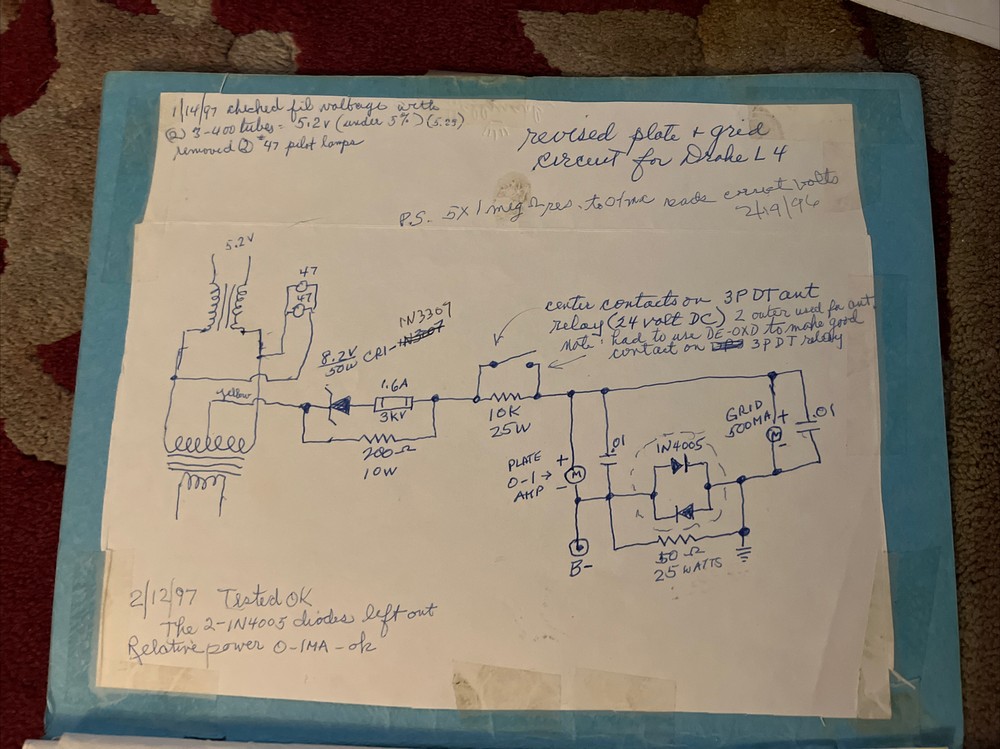 1/14/97 checked fil voltage with
② 3-400 tubes = 5.2v (under 5%) (5.23)
removed ② #47 pilot lamps
revised plate + grid
circuit for Drake L4
P.S. 5X1 meg Ω res. to 0/ma reads correct volts
2/19/96
5.2V
47
47
center contacts on 3PDT ant
relay (24 volt DC) 2 outer used for ant.
note: had to use DE-OXD to make good
contact on 3PDT relay
1N3307
8.2V
50W CR1-1N3207
yellow
1.6A
3KV
200Ω
10W
10K
25W
PLATE
0-1→
AMP
+
M
-
B-
.01
1N4005
50Ω
25 WATTS
GRID
500MA
+
M
-
.01
2/12/97 Tested OK
The 2-1N4005 diodes left out
Relative power 0-1MA-ok